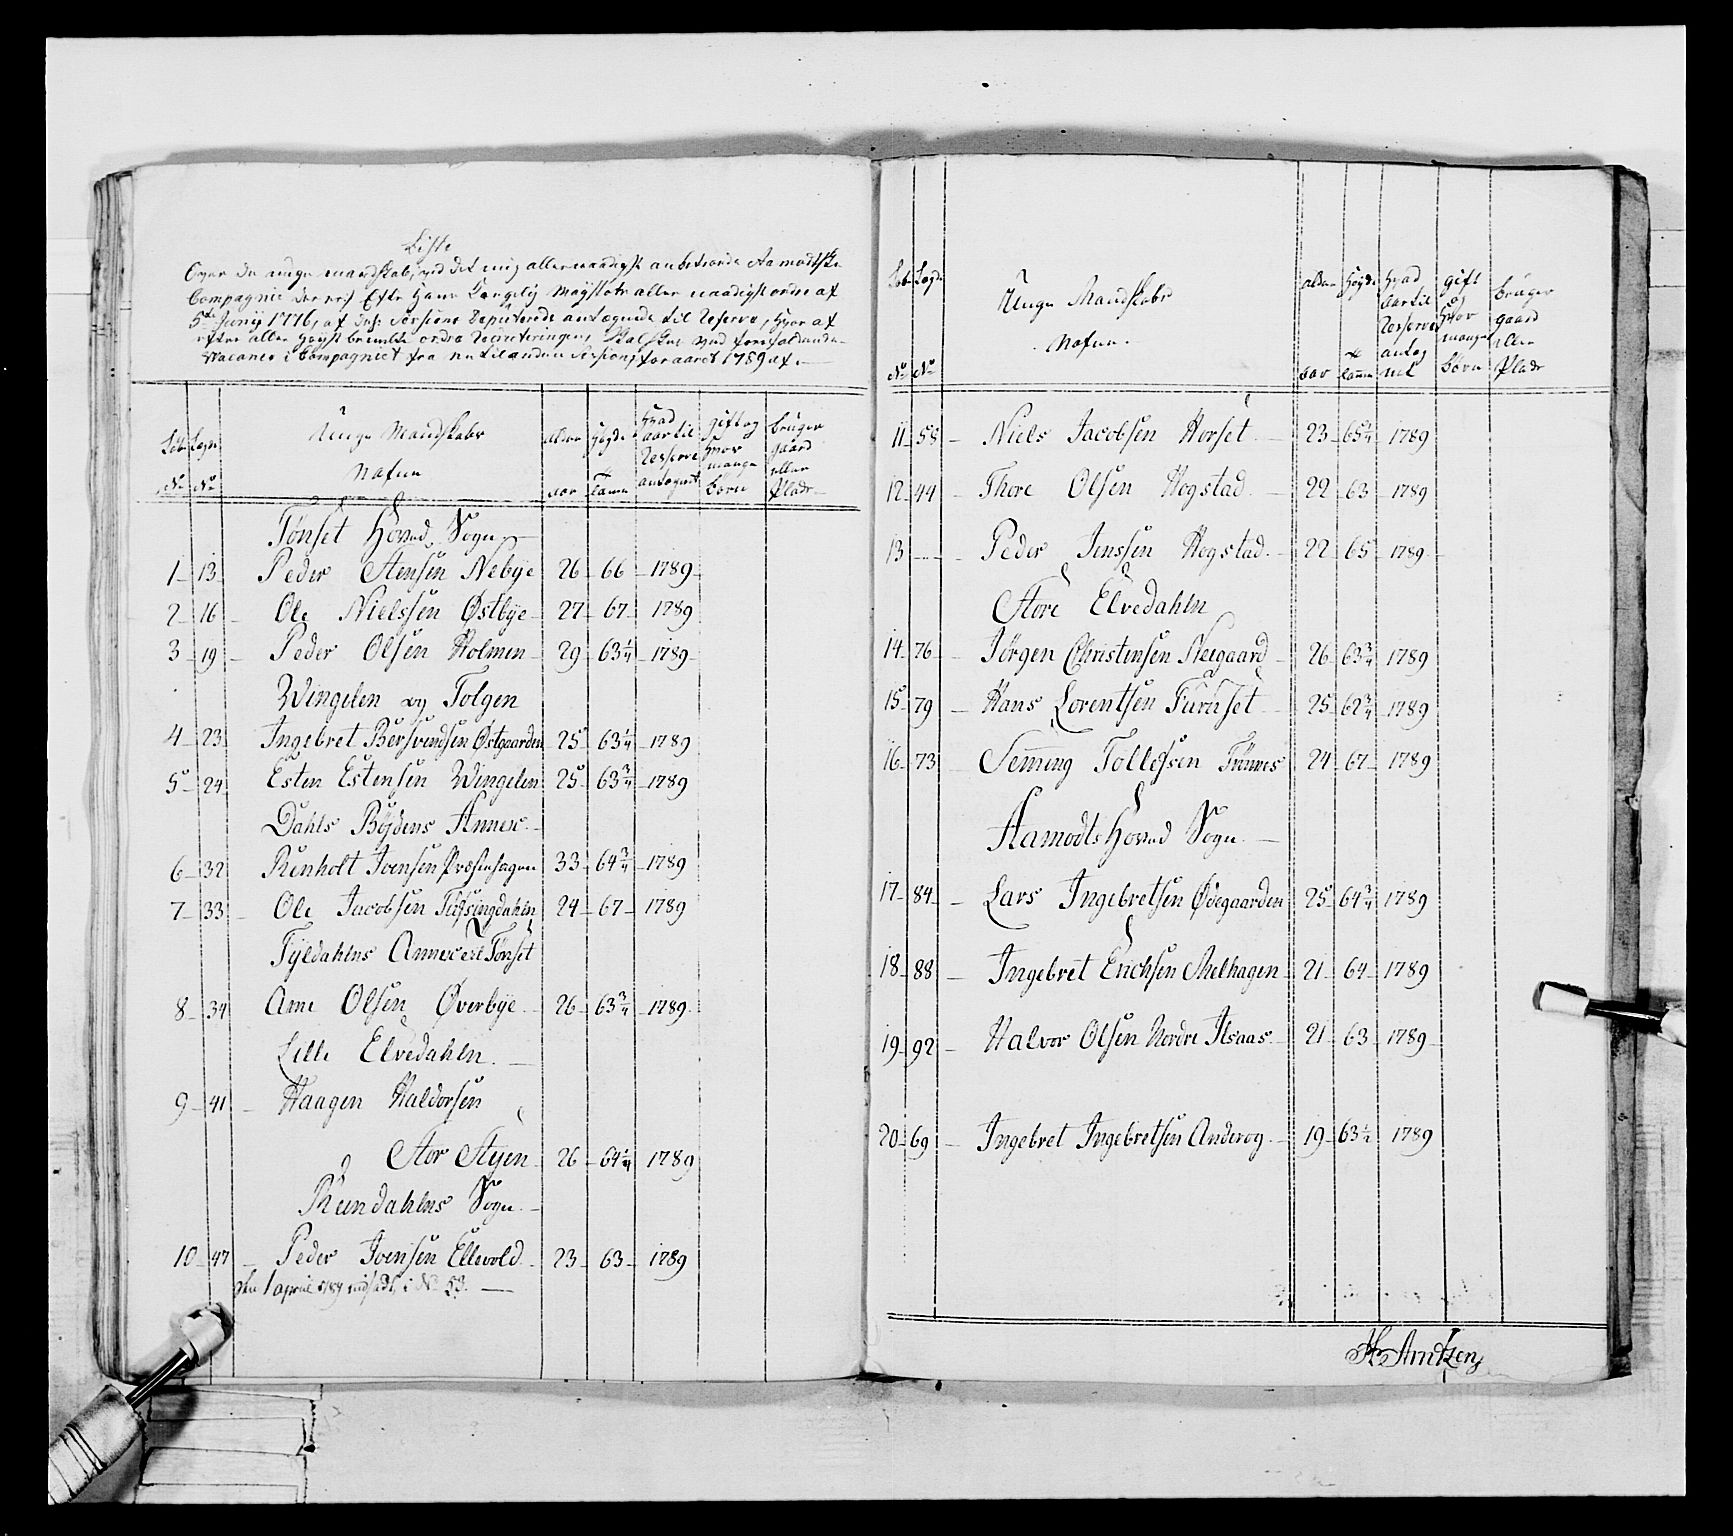 Liste
Over de unge mandskab, ved det mig allernaadigst anbetroede Aamodtske
Compagnie der ved Efter Hans Kongelig Mayestæts aller naadigst ordre af
5te Junij 1776, af Sessions Deputerede antegnede til Reserve, hvor af
efter aller høyst bemelte ordre Recruteringen, skal skee ved forefaldende
Vacance i Compagniet fra nu til anden Session, for aaret 1789 af
Lebe Lægds Unge Mandskabs alder høyde Hvad gift og bruger
aar til hvor gaard
Nafne Reserve mange eller
No No aar Tomm antagnet børn Plads
Tønset Hoved Sogn
1 13 Peder Stensen Nebye 26 66 1789
2 16 Ole Nielssen Østbye 27 67 1789
3 19 Peder Olsen Holmen 29 63 1/4 1789
Wingelen og Tolgen
4 23 Ingebret Bersvendsen Østgaarden 25 63 1/4 1789
5 24 Esten Estensen Wingelen 25 63 3/4 1789
Dahls Bøjdens Annex
6 32 Renholt Joensen 33 64 3/4 1789
7 33 Ole Jacobsen Tufsingdahln 24 67 1789
Tyldahlns Annex til Tønset
8 34 Arne Olsen Øverbye 26 63 3/4 1789
Lille Elvedahln
9 41 Haagen Haldorsen
Stor Styen 26 64 1/4 1789
Rendahlns Sogn
10 47 Peder Joensen Ellevold 23 63 1789
den 1 april 1789 indsadt i No 53.
Lebe Lægds Unge Mandskabs alder høyde Hvad gift bruger
aar til og gaard
Nafne Reserve hvor eller
antag mange Plads
No No aar Tomm net børn
11 58 Niels Jacobsen Horset 23 65 1/4 1789
12 44 Thore Olsen Hogstad 22 63 1789
13 Peder Jenssen Hogstad 22 65 1789
Store Elvedahln
14 76 Jørgen Christensen Neegaard 26 63 3/4 1789
15 79 Hans Lorentsen Furuset 25 62 3/4 1789
16 73 Semming Tollefsen 24 67 1789
Aamodts Hoved Sogn
17 84 Lars Ingebretsen Ødegaarden 25 64 3/4 1789
18 88 Ingebret Erichsen Melhagen 21 64 1789
19 92 Halvor Olsen Nordre Ilsaas 21 63 1789
20 69 Ingebret Ingebretsen Androg 19 63 1/2 1789
H Arntzen